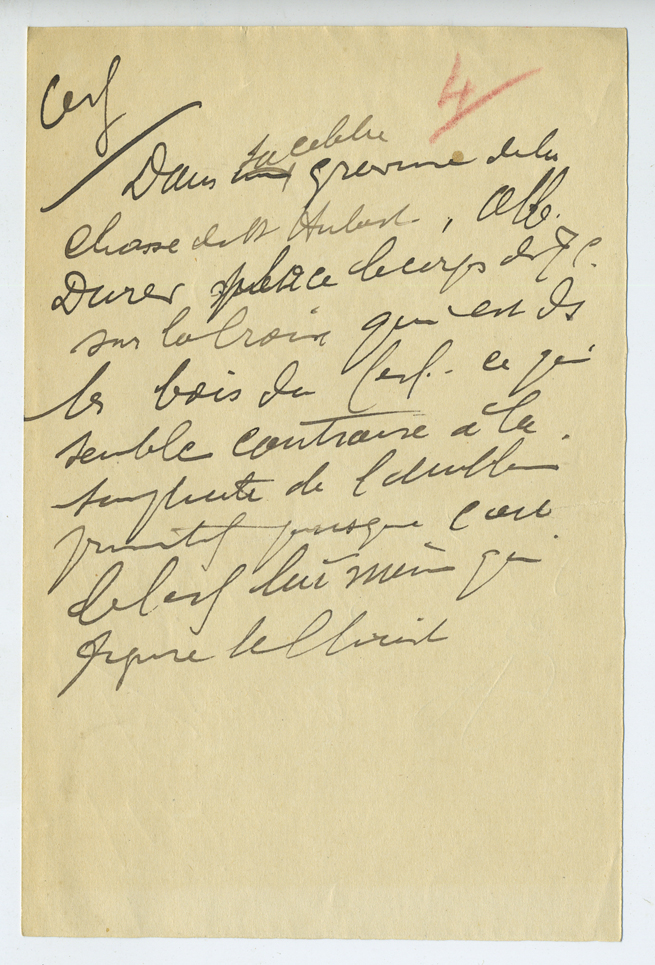 Cerf
4
sa celebre
Dans une gravure de la
Chasse de St Hubert, Alb.
Durer place le corps de J C.
sur la Croix qui est ds
les bois du Cerf. ce qui
semble contraire à la
simplicité de l'emblème
primitif puisque c'est
le Cerf lui même qui
figure le Christ